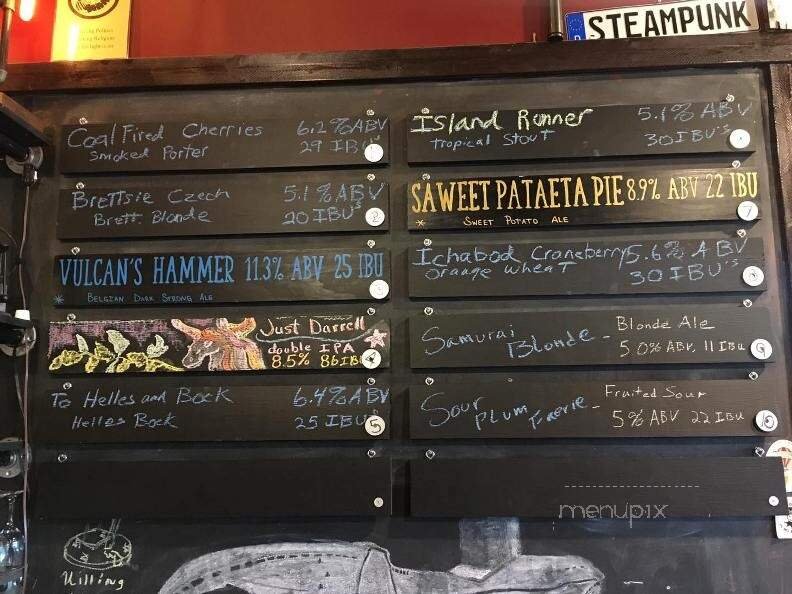 STEAMPUNK
Coal Fired Cherries 6.2% ABV
Smoked Porter 29 IBU
1
Brettsie Czech 5.1% ABV
Brett. Blonde 20 IBU's
2
VULCAN'S HAMMER 11.3% ABV 25 IBU
* BELGIAN DARK STRONG ALE
3
Just Darrell
double IPA
8.5% 86 IBU
4
To Helles and Bock 6.4% ABV
Helles Bock 25 IBU
5
Island Runner 5.1% ABV
tropical Stout 30 IBU's
SAWEET PATAETA PIE 8.9% ABV 22 IBU
* SWEET POTATO ALE
7
Ichabod Craneberry 5.6% ABV
orange wheat 30 IBU's
Samurai Blonde - Blonde Ale
5.0% ABV, 11 IBU
9
Sour Plum Faerie - Fruited Sour
5% ABV 22 IBU
10
menupix